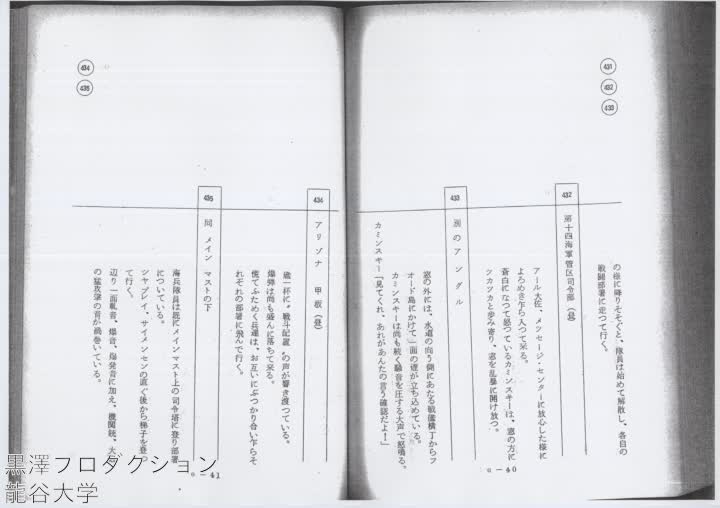 431
432
433
の様に降りそそぐと、隊員は始めて解散し、各自の
戦闘部署に走つて行く。
432 第十四海軍管区司令部（昼）
アール大佐、メツセージ・センターに放心した様に
よろめき乍ら入つて来る。
蒼白になつて怒つているカミンスキーは、窓の方に
ツカツカと歩み寄り、窓を乱暴に開け放つ。
433 別のアングル
窓の外には、水道の向う側にあたる戦艦横丁からフ
オード島にかけて一面の煙が立ち込めている。
カミンスキーは尚も続く騒音を圧する大声で怒鳴る。
カミンスキー「見てくれ、あれがあんたの言う確認だよ！」
G－40
434
435
434 アリゾナ 甲板（昼）
艦一杯に〝戦斗配置〟の声が響き渡つている。
爆弾は尚も盛んに落ちて来る。
慌てふためく兵達は、お互いにぶつかり合い乍らそ
れぞれの部署に飛んで行く。
435 同 メイン マストの下
海兵隊員は既にメインマスト上の司令塔に登り部署
についている。
シヤプレイ、サイメンセンの直ぐ後から梯子を登つ
て行く。
辺り一面轟音、爆音、爆発音に加え、機関銃、大
の猛攻撃の音が渦巻いている。
G－41
黒澤プロダクション
龍谷大学